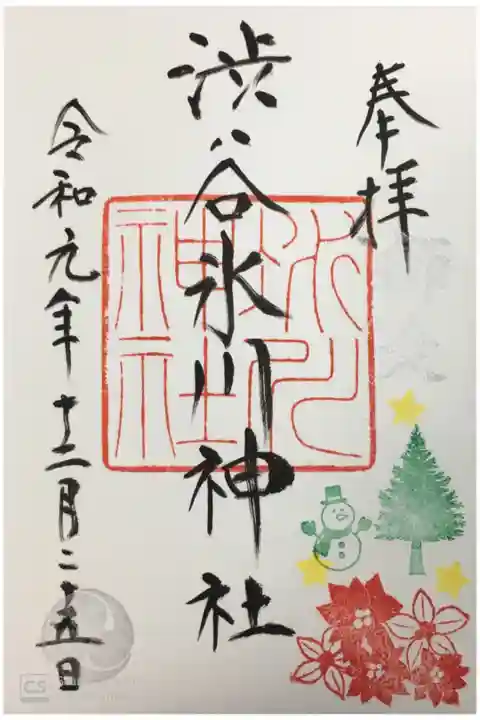 奉拝
渋谷氷川神社
氷川神社
令和元年十二月二十五日
CS